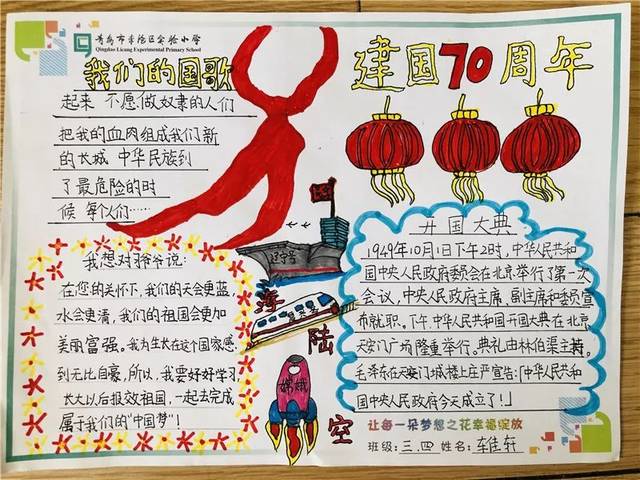 青岛市李沧区实验小学
Qingdao Licang Experimental Primary School
我们的国歌
起来 不愿做奴隶的人们
把我的血肉组成我们新
的长城 中华民族到
了最危险的时
候 每个人们……
建国70周年
我想对爷爷说:
在您的关怀下,我们的天会更蓝,
水会更清,我们的祖国会更加
美丽富强。我为生长在这个国家感
到无比自豪。所以,我要好好学习
长大以后报效祖国,一起去完成
属于我们的“中国梦”!
辽宁号
海
陆
空
嫦娥
开国大典
1949年10月1日下午2时,中华人民共和
国中央人民政府委员会在北京举行了第一次
会议,中央人民政府主席、副主席和委员宣
布就职。下午,中华人民共和国开国大典在北京
天安门广场隆重举行。典礼由林伯渠主持。
毛泽东在天安门城楼上庄严宣告:「中华人民共和
国中央人民政府今天成立了!」
让每一朵梦想之花幸福绽放
班级: 三.四 姓名: 车佳轩